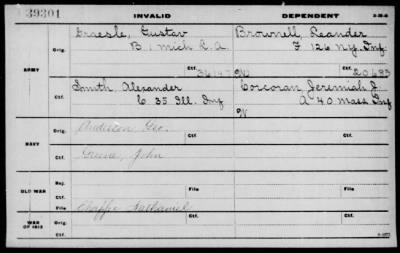 39301
INVALID DEPENDENT
Graesle, Gustav Brownell, Leander
Orig. B 1 Mich L. A. F 126 N.Y. Inf
ARMY Ctf. W Ctf. 20683
Smith, Alexander Corcoran, Jeremiah J.
Ctf. C 35 Ill. Inf A 40 Mass Inf
W
Orig. Anderson Geo. Ctf.
NAVY
Ctf. Greene, John
Rej. Ctf.
OLD WAR File File
Ctf. Chaffee Nathaniel
WAR OF 1812 Orig. Ctf.
Ctf.